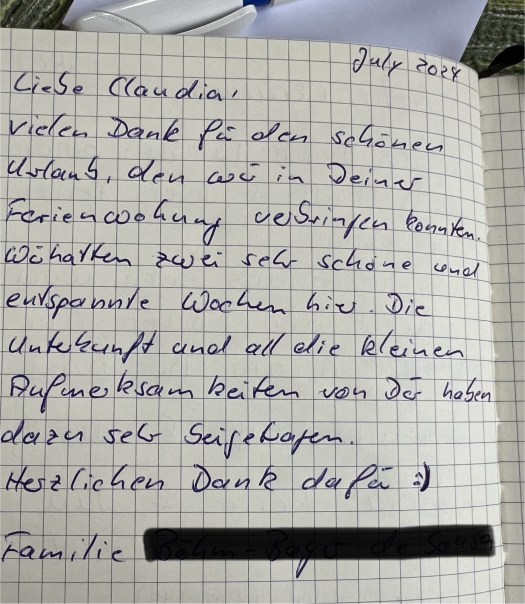 July 2024
Liebe Claudia,
vielen Dank für den schönen
Urlaub, den wir in Deiner
Ferienwohnung verbringen konnten.
Wir hatten zwei sehr schöne und
entspannte Wochen hier. Die
Unterkunft und all die kleinen
Aufmerksamkeiten von Dir haben
dazu sehr beigetragen.
Herzlichen Dank dafür :)
Familie